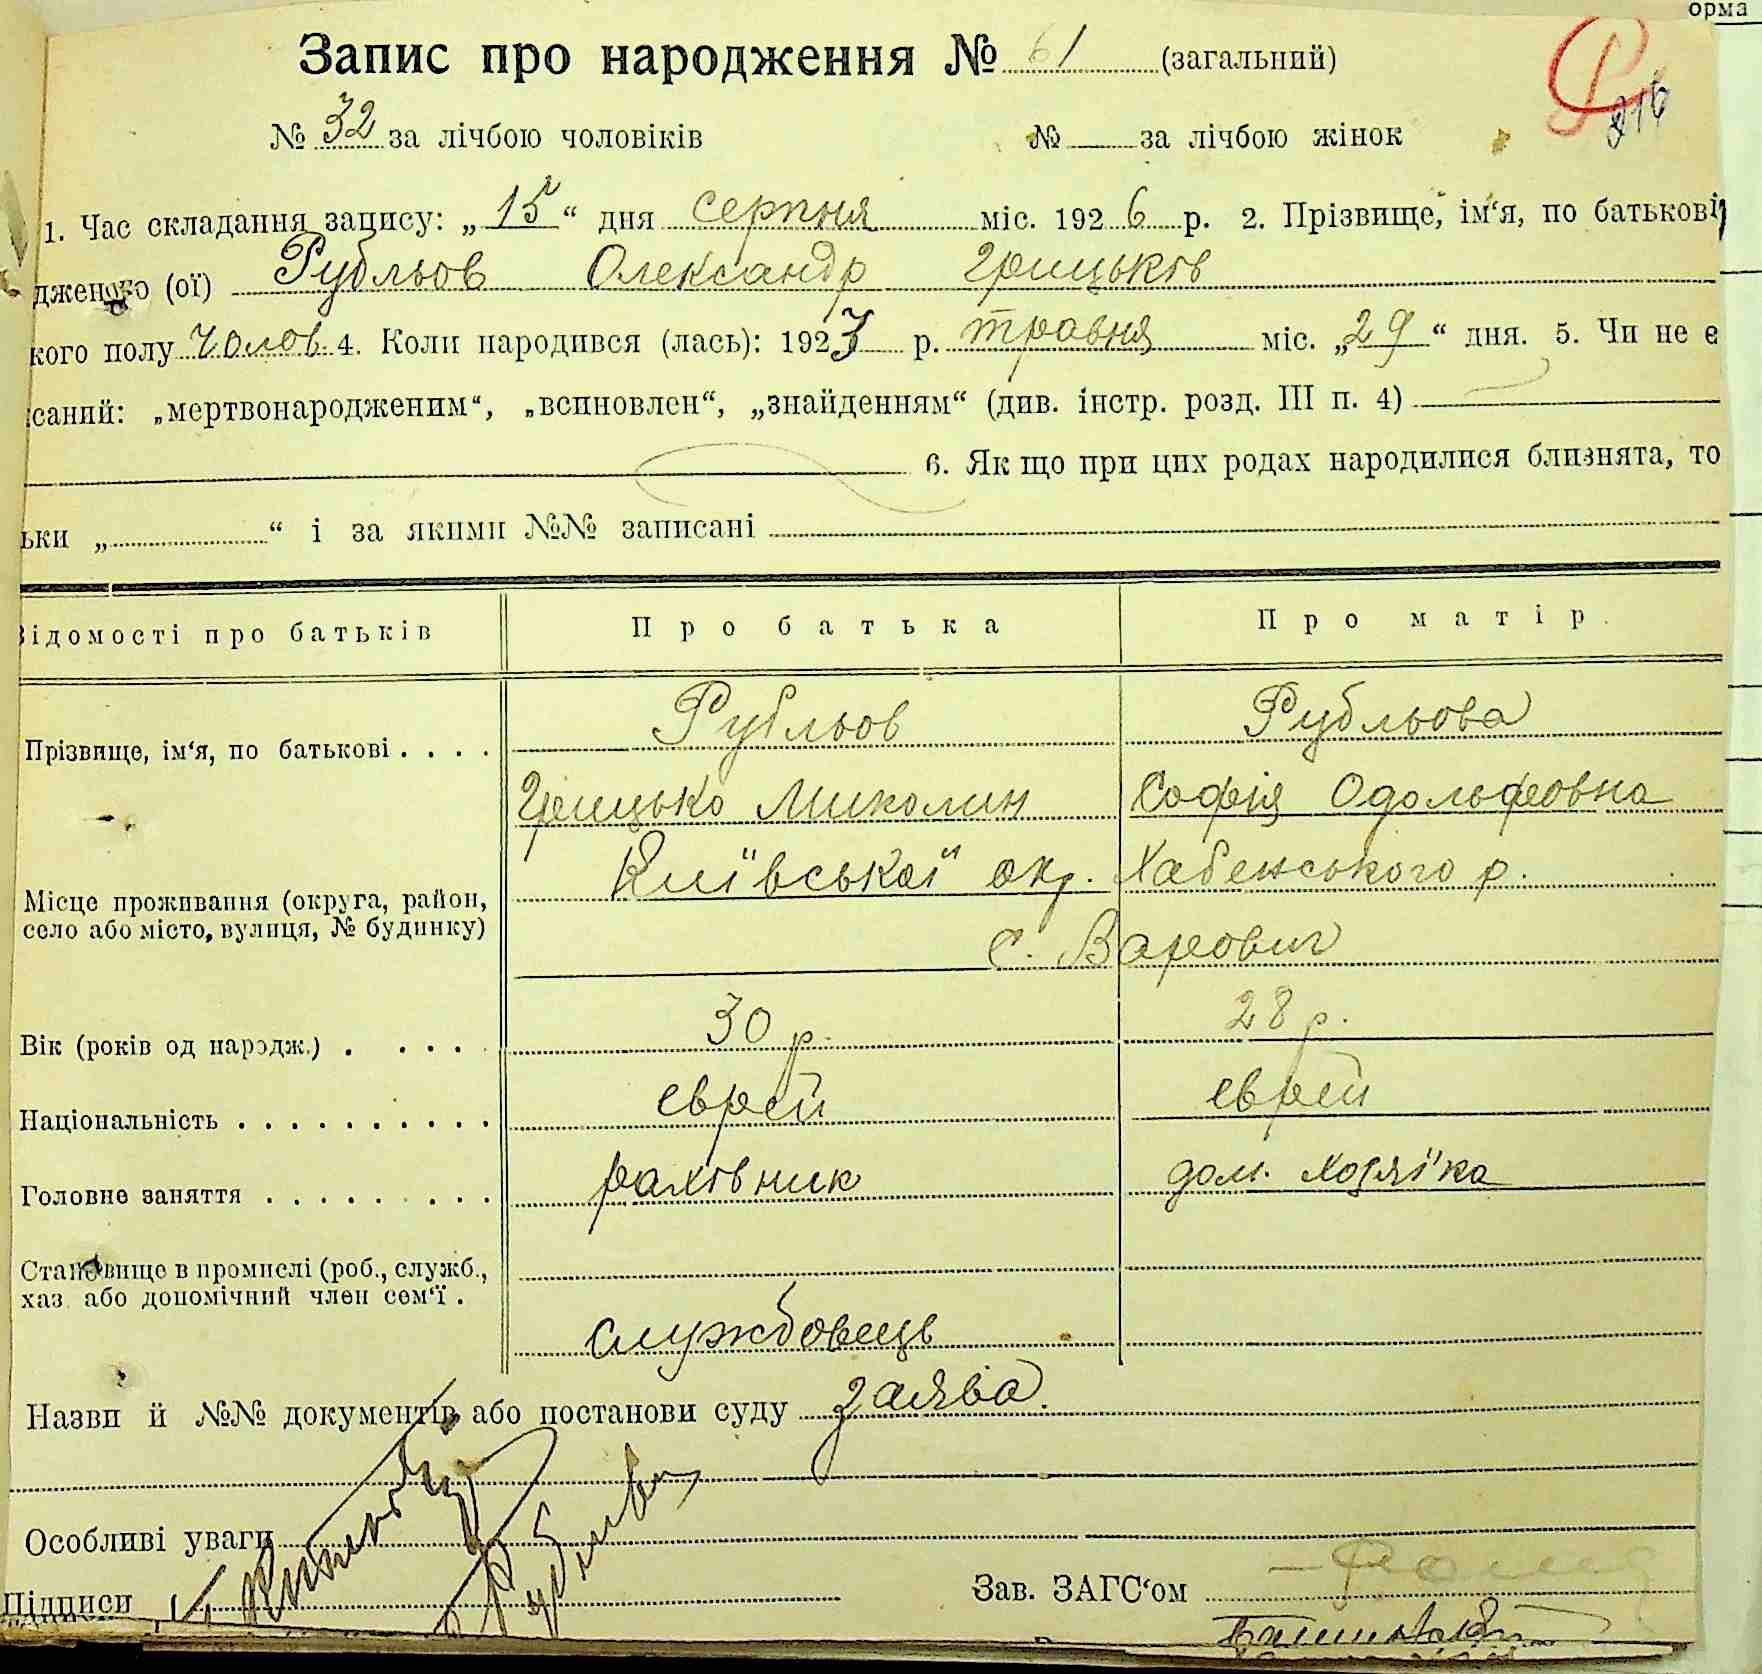 орма
Запис про народження № 61 (загальний)
216
№ 32 за лічбою чоловіків № за лічбою жінок
1. Час складання запису: „15“ дня серпня міс. 1926 р. 2. Прізвище, ім‘я, по батькові
дженого (ої) Рубльов Олександр Грицьків
кого полу чолов. 4. Коли народився (лась): 1923 р. травня міс. „29“ дня. 5. Чи не є
саний: „мертвонародженим“, „всиновлен“, „знайденням“ (див. інстр. розд. III п. 4)
6. Як що при цих родах народилися близнята, то
ьки „ “ і за якими №№ записані
Відомості про батьків Про батька Про матір
Рубльов Рубльова
Прізвище, ім‘я, по батькові . . . .
Грицько Миколин Софія Одольфовна
Київської окр. Хабенського р.
Місце проживання (округа, район,
село або місто, вулиця, № будинку)
с. Варовичі
Вік (років од народж.) . . . . . 30 р. 28 р.
Національність . . . . . . . . . . еврей еврей
Головне заняття . . . . . . . . . рахівник дом. хозяїка
Становище в промислі (роб., служб.,
хаз. або допомічний член сем‘ї .
службовець
Назви й №№ документів або постанови суду заява.
Особливі уваги
Підписи Зав. ЗАГС‘ом